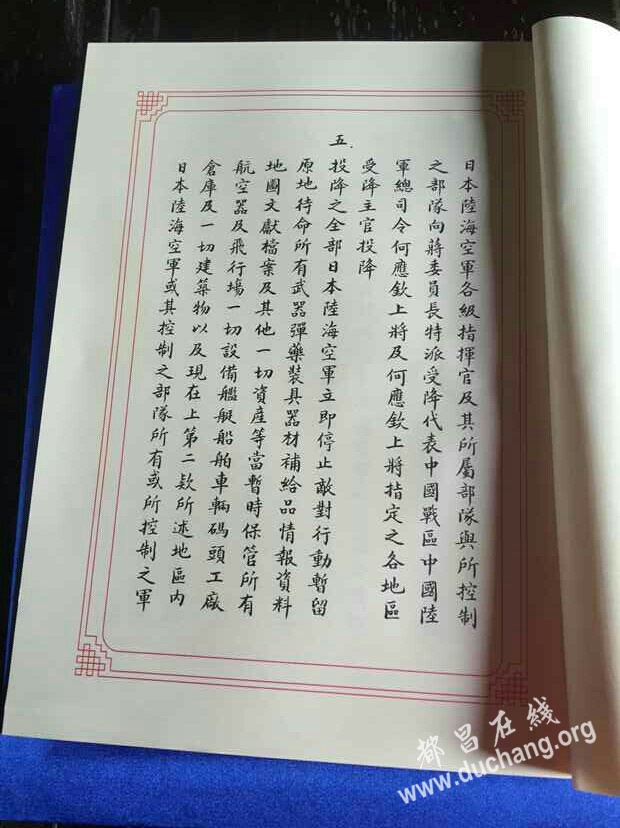 日本陸海空軍各級指揮官及其所屬部隊與所控制
之部隊向蔣委員長特派受降代表中國戰區中國陸
軍總司令何應欽上將及何應欽上將指定之各地區
受降主官投降
五.
投降之全部日本陸海空軍立即停止敵對行動暫留
原地待命所有武器彈藥裝具器材補給品情報資料
地圖文獻檔案及其他一切資產等當暫時保管所有
航空器及飛行場一切設備艦艇船舶車輛碼頭工廠
倉庫及一切建築物以及現在上第二款所述地區內
日本陸海空軍或其控制之部隊所有或所控制之軍
都昌在线
www.duchang.org